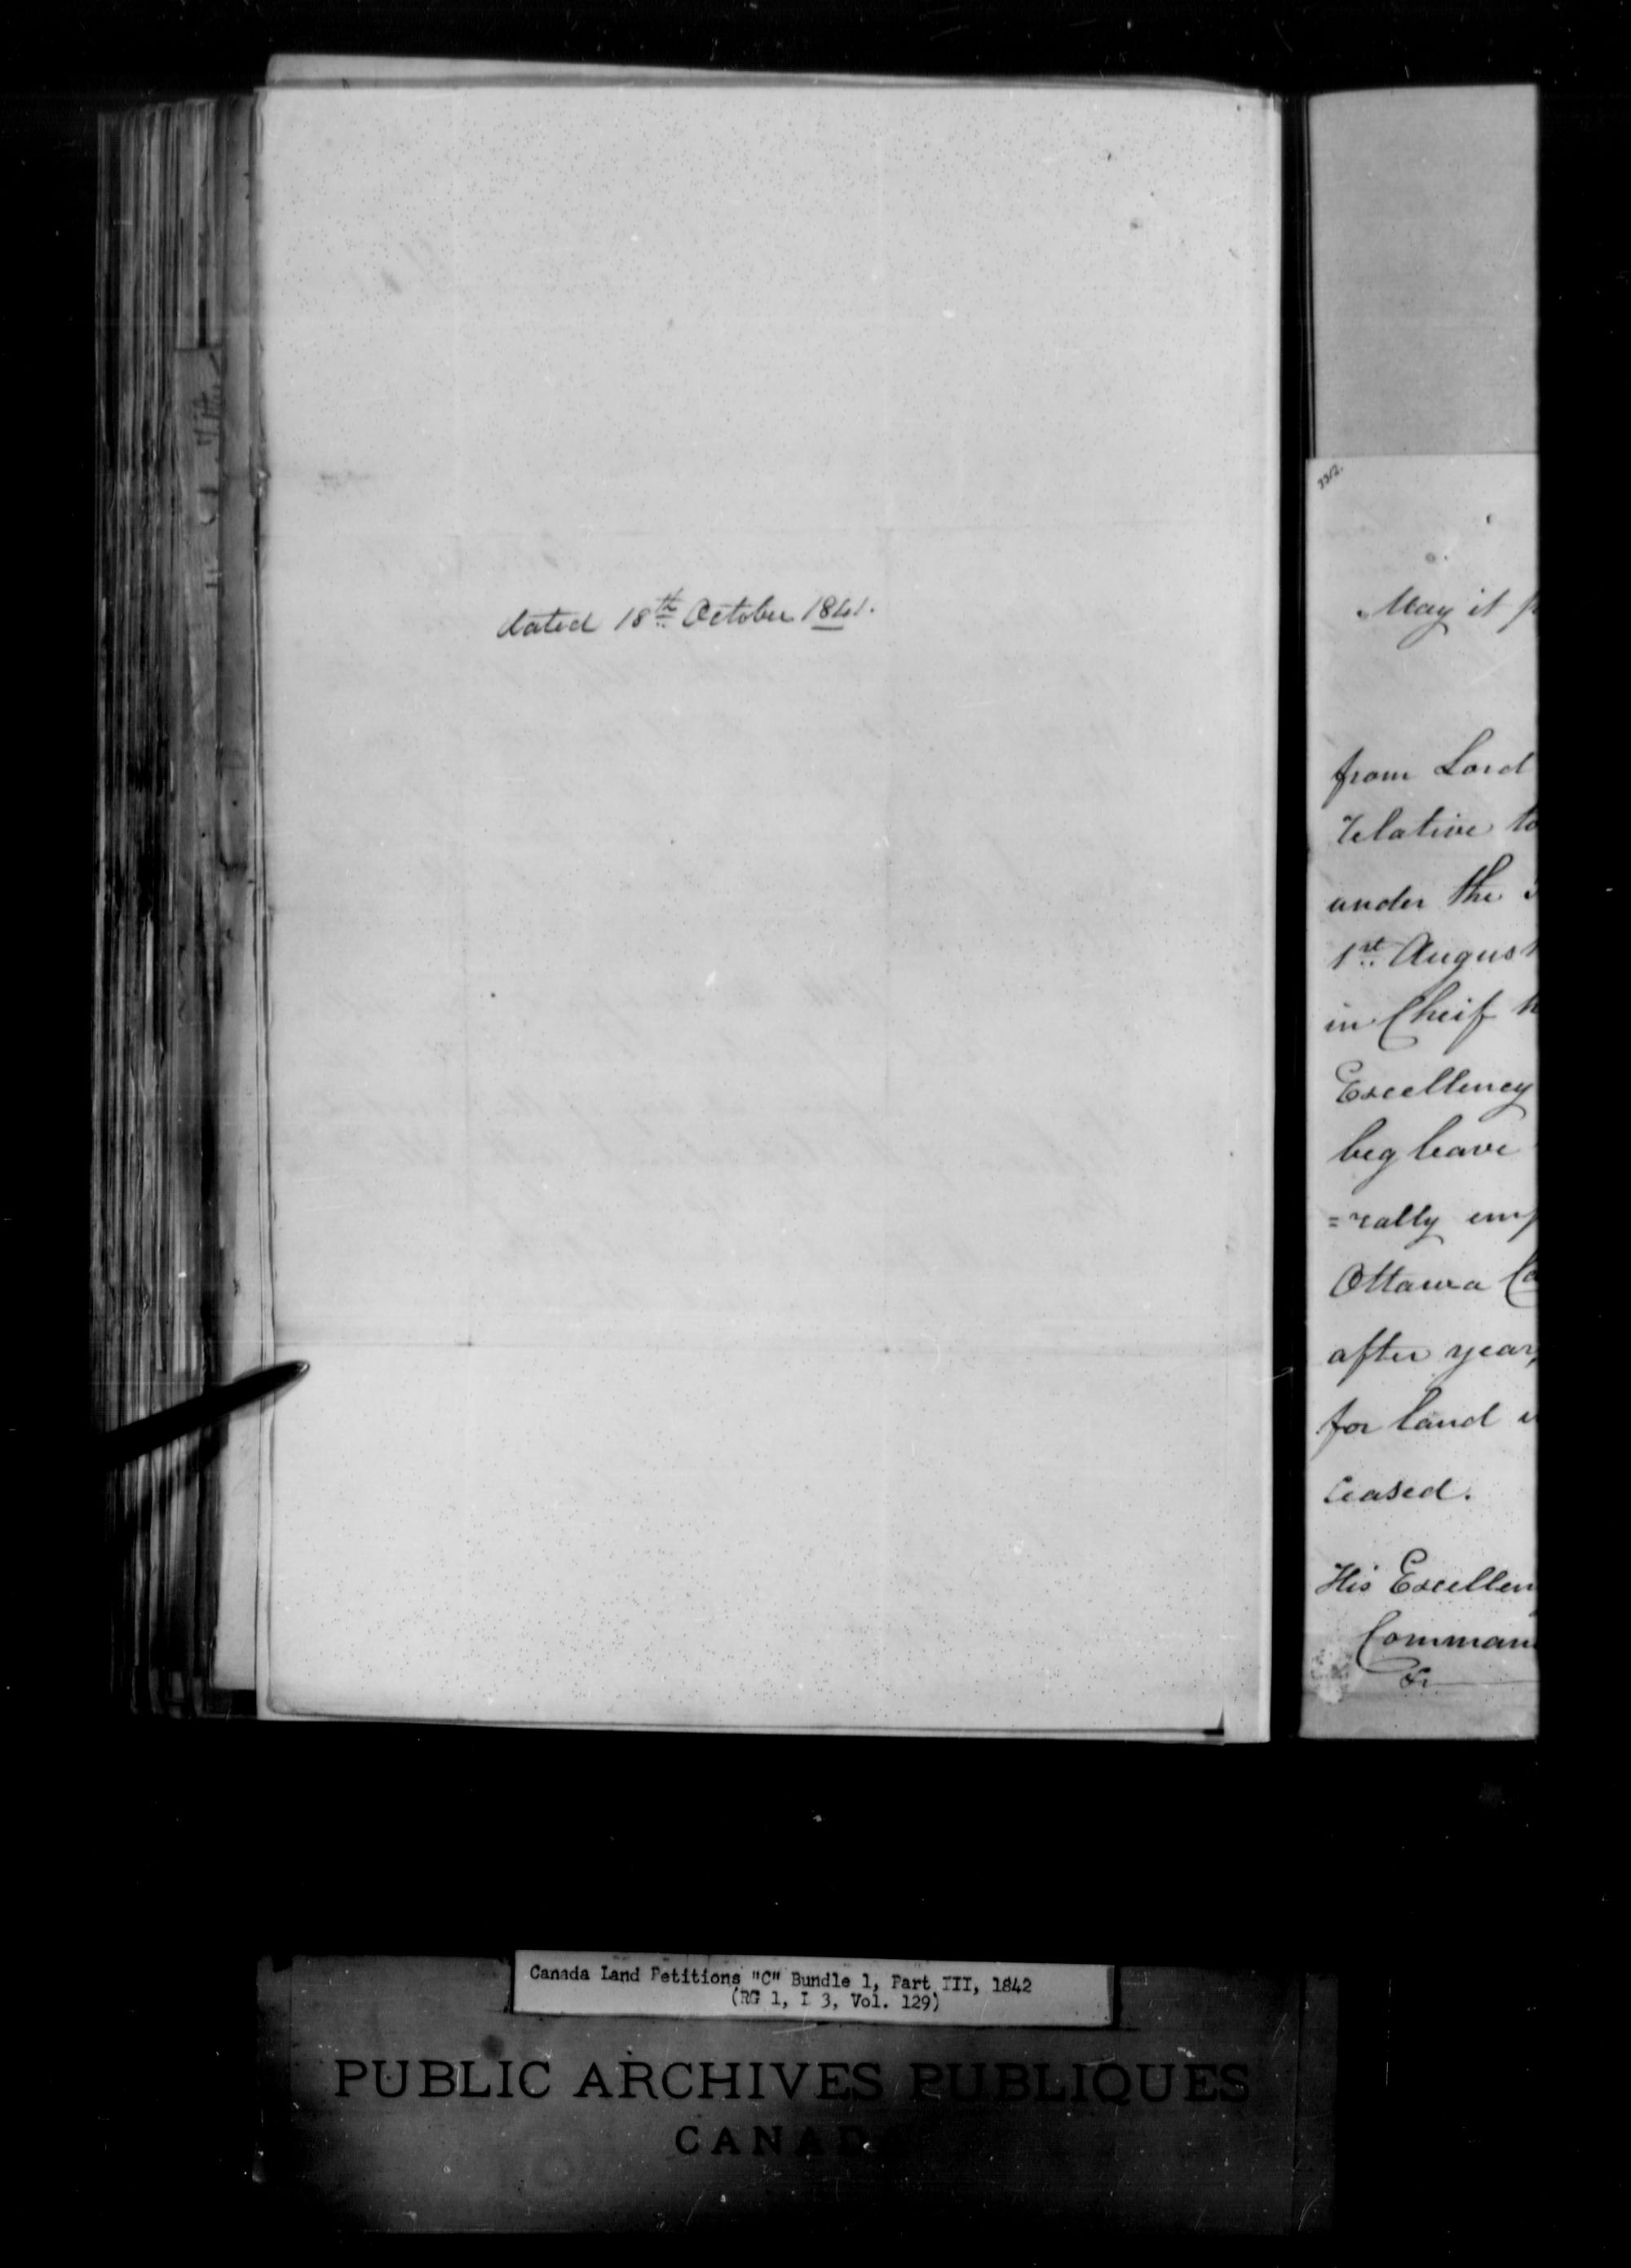 dated 18th October 1841.
33/2.
May it p
from Lord
relative to
under the
1st August
in Cheif
Excellency
beg leave
=rally emp
Ottawa Ca
after year,
for land
ceased.
His Excellen
Comman
&c
Canada Land Petitions "C" Bundle 1, Part III, 1842
(RG 1, L 3, Vol. 129)
PUBLIC ARCHIVES PUBLIQUES
CANADA